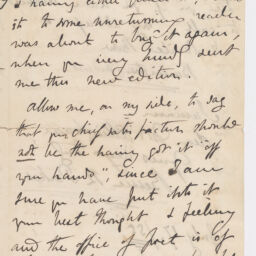 I having either
it to some unreturning reader
was about to buy it again,
when you very kindly sent
me this new edition.
Allow me, on my side, to say
that your chief satisfaction should
not be the having got it "off
your hands", since I am
sure you have put into it
your best thought & feeling
and the office of poet is of